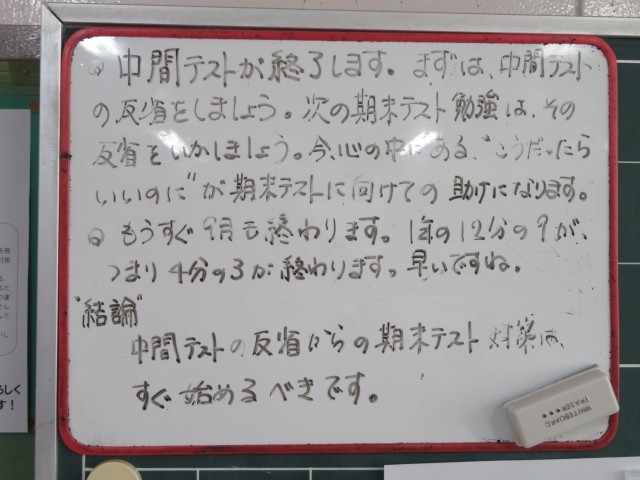 ◦ 中間テストが終了します。まずは、中間テスト
の反省をしましょう。次の期末テスト勉強は、その
反省をいかしましょう。今、心の中にある、"こうだったら
いいのに"が期末テストに向けての助けになります。
◦ もうすぐ9月も終わります。1年の12分の9が、
つまり4分の3が終わります。早いですね。
"結論"
中間テストの反省からの期末テスト対策は、
すぐ始めるべきです。
WHITEBOARD
ERASER
らしく
す!